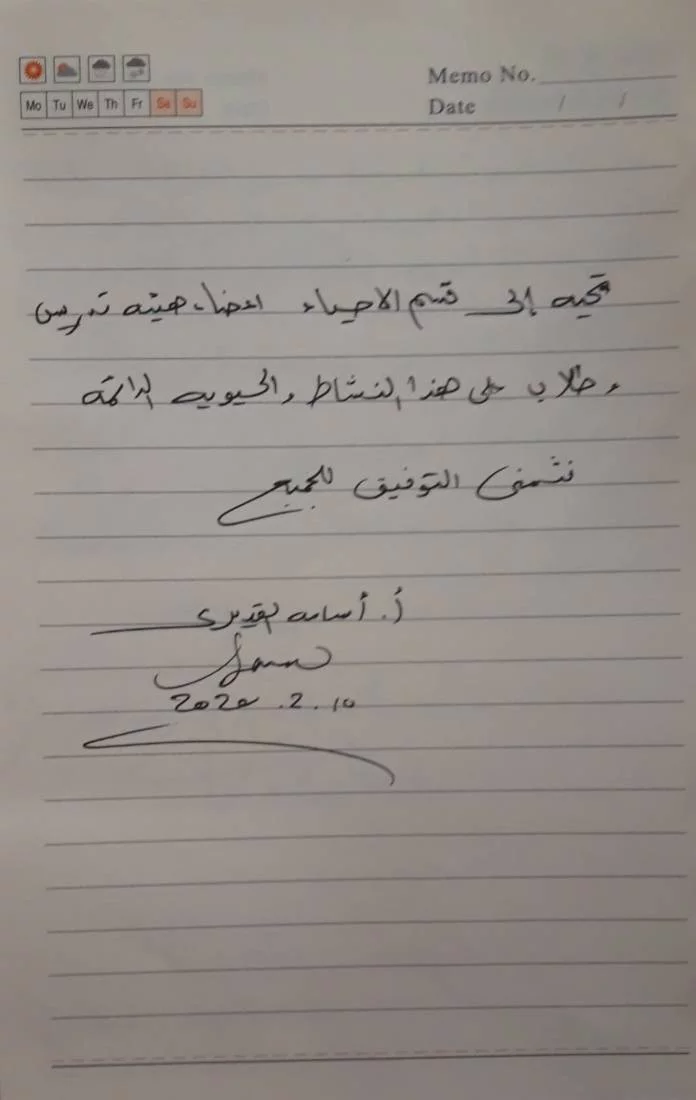 Memo No.
Mo Tu We Th Fr Sa Su
Date / /
تحيه إلى قسم الاحياء اعضاء هيئه تدريس
و طلاب على هذا النشاط والحيويه الدائمة
نتمنى التوفيق للجميع
أ. أسامه القديري
2020.2.10